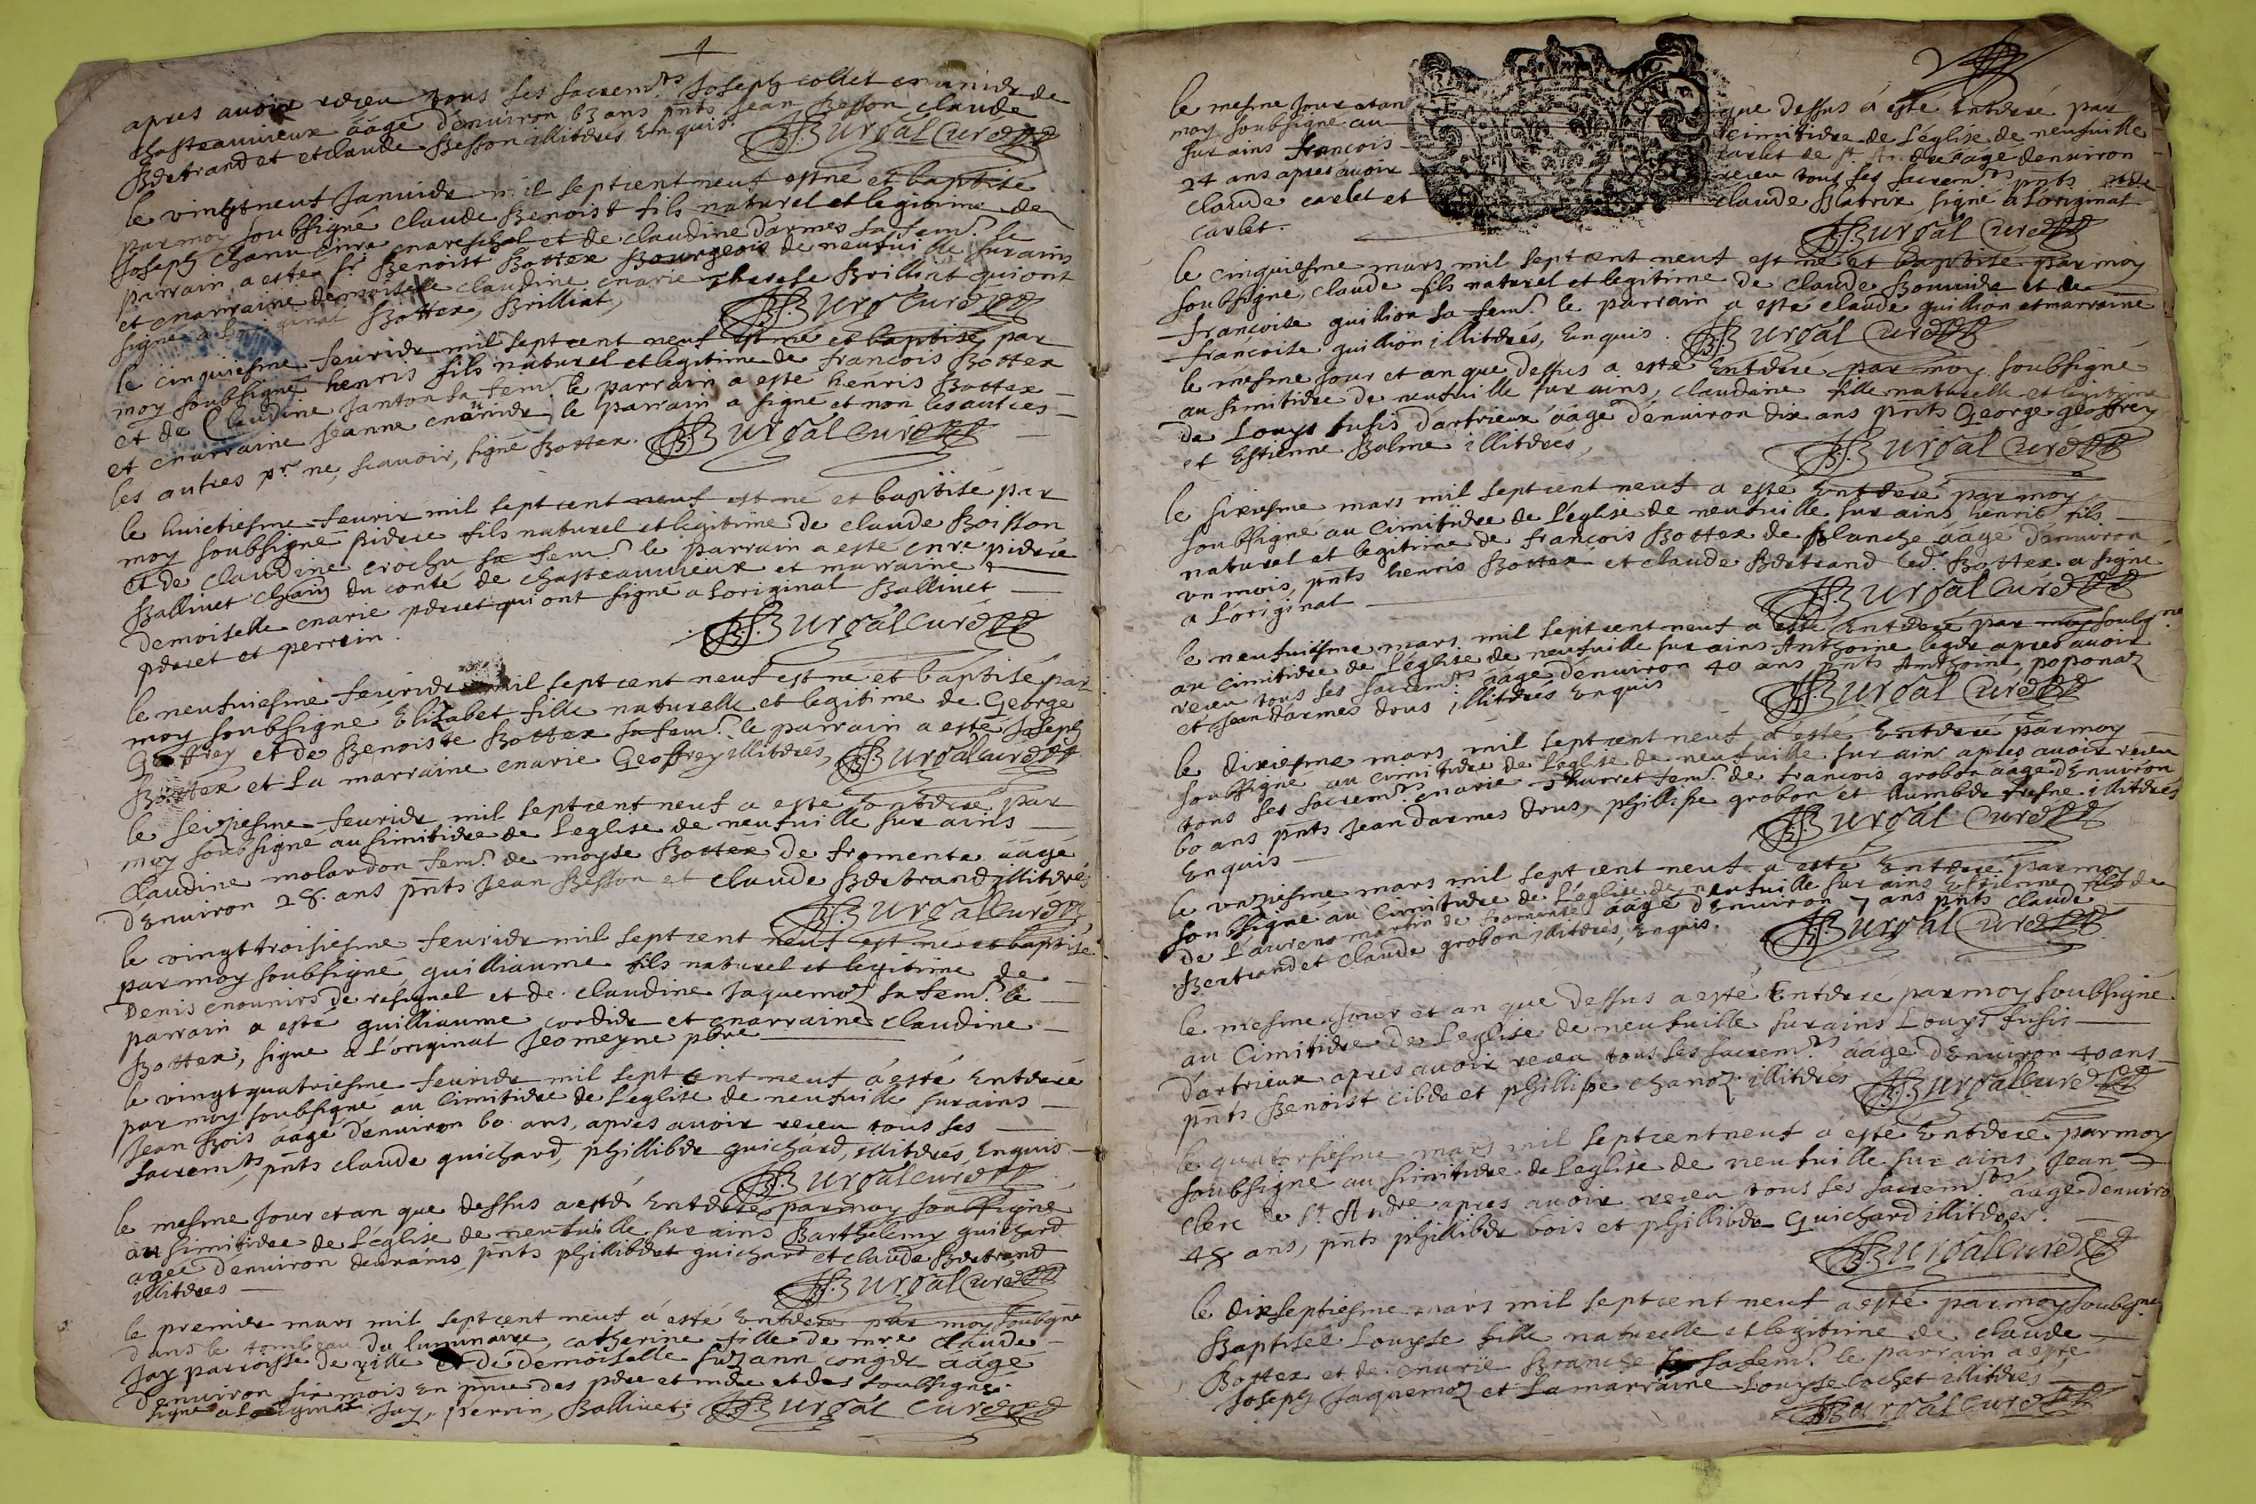 1
apres avoir receu tous ses sacremts Joseph collet munier de
chasteauvieux aagé d'environ 63 ans pnts Jean Besson claude
Bertrand et et claude Besson illitérés Enquis. Burgal Curé
le vingtneuf Janvier mil septcent neuf est né et baptisé
par moy soubsigné claude Benoist fils naturel et legitime de
Joseph mareschal et de claudine d'armes sa fem. le
parrain a esté sr Benoist Bottex Bourgeois de neufville sur ains
et marraine demoiselle claudine marie therese Brillat qui ont
signé a Bottex, Brilliat, Burgal Curé
le cinquiesme feurier mil septcent neuf est né et baptisé par
moy soubsigné henris fils naturel et legitime de françois Bottex
et de Claudine Janton sa fem. le parrain a esté henris Bottex
et marraine Jeanne le parrain a signé et non les autres
les autres pr ne, scavoir, signé Bottex. Burgal Curé
le huictiesme feurier mil septcent neuf est né et baptisé par
moy soubsigné pierre fils naturel et legitime de claude Boisson
et de claudine crochu sa fem. le parrain a esté mre pierre
Ballivet du conté de chasteauvieux et marraine
Demoiselle marie perret qui ont signé a Loriginal Ballivet
perret et perrin. Burgal Curé
le neufviesme feurier mil septcent neuf est né et baptisé par
moy soubsigné Elizabet fille naturelle et legitime de George
Geoffrey et de Benoiste Bottex sa fem. le parrain a esté Joseph
Bottex et la marraine marie Geoffrey illitérés, Burgal Curé
le seiziesme feurier mil septcent neuf a esté entéré par
moy soubsigné au simitiere de Leglise de neufville sur ains
Claudine molardon fem. de moyse Bottex de fromente aagé
d'Environ 28. ans pnts Jean Besson et claude Bertrand illitérés
Burgal Curé
le vingttroisiesme feurier mil septcent neuf est né et baptisé
par moy soubsigné guilliaume fils naturel et legitime de
Denis mounirs de resignel et de claudine Jaquemoz sa fem. le
parrain a esté guilliaume cordier et marraine claudine
Bottex, signé a L'original Jeomeyne pbre
le vingtquatriesme feurier mil septcent neuf a esté Entéré
par moy soubsigné au Cimitiere de Leglise de neufville sur ains
Jean Bois aagé d'environ 60. ans, apres avoir receu tous ses
sacremts, pnts claude guichard, phillibér guichard, illitérés, Enquis
Burgal curé
le mesme Jour et an que dessus a esté Entéré par moy soubsigné
au simitiere de Léglise de neufville sur ains Barthelemy guichard
agée d'environ deux ans pnts phillibért guichard et claude Bertrand
illitérés Burgal Curé
le premier mars mil septcent neuf a esté Entéré par moy soubsigné
dans le tombeau du luminaire, catherine fille de mre claude
Jay parroisse de ville et de demoiselle suzann conger aagé
d'environ six mois En pnce des pére et mére et des soubsignés
signé a Loriginal Jay, perrin, Ballivet; Burgal Curé
2
le mesme Jour et an que dessus a esté Entéré par
moy soubsigné au cimitiére de Léglise de neufville
sur ains françois carlet de st Andre aagé denviron
24 ans apres avoir receu tous ses sacremts pnts
claude carlet et claude Blatrix signé a Loriginal
carlet. Burgal Curé
le cinquiesme mars mil septcent neuf est né et baptisé par moy
soubsigné, claude fils naturel et legitime de claude Bouvier et de
françoise guillion sa fem. le parrain a esté claude guillion et marraine
françoise guillion illitérés, Enquis. Burgal Curé
le mesme Jour et an que dessus a esté Entéré par moy soubsigné
au simitiere de neufville sur ains, claudine fille naturelle et legitime
de Louys fusis d'artrieux aagé d'environ dix ans pnts George geoffrey
et Estienne Balme illitérés, Burgal Curé
le sixiesme mars mil septcent neuf a esté Entéré par moy
soubsigné au Cimitiere de L'église de neufville sur ains henris fils
naturel et legitime de françois Bottex de planche aagé d'environ
un mois, pnts henris Bottex et claude Bertrand led. Bottex a signé
a L'original Burgal Curé
le neufviesme mars mil septcent neuf a esté Entéré par moy soubsigné
au cimitiere de Léglise de neufville sur ains Anthoine legér apres avoir
receu tous ses sacremts aagé d'environ 40 ans pnts Anthoine poponaz
et Jean d'armes tous illitérés Enquis Burgal Curé
le dixiesme mars mil septcent neuf a esté Entéré par moy
soubsigné au cimitiere de Leglise de neufville sur ains apres avoir receu
tous ses sacremts marie thurret fem. de francois grobon aagé d'Environ
60 ans pnts Jean darmes dous, phillipe grobon et humbér fresne illitérés
Enquis Burgal Curé
le unziesme mars mil septcent neuf a esté Entéré par moy
soubsigné au Cimitiere de L'eglise de neufville sur ains Estienne fils de
de Laurens martin de fromente aagé d'Environ 7 ans pnts claude
Bertrand et claude grobon illitérés, Enquis. Burgal Curé
le mesme Jour et an que dessus a esté Entéré par moy soubsigné
au Cimitiere de Leglise de neufville sur ains Louys fusis
d'artrieux apres avoir receu tous ses sacremts aagé d'Environ 40 ans
pnts Benoist cibér et phillipe chanoz illitérés Burgal Curé
le quatorsiesme mars mil septcent neuf a esté Entéré par moy
soubsigné au simitiere de Leglise de neufville sur ains, Jean
clerc de st André apres avoir receu tous ses sacremts aagé d'enviro
48 ans, pnts phillibér bois et phillibér Guichard illitérés.
Burgal Curé
le dixseptiesme mars mil septcent neuf a esté par moy soubsigné
Baptisée Louyse fille naturelle et legitime de claude
Bottex et de marie Branche sa fem. le parrain a esté
Joseph Jaquemoz et La marraine Louyse Cochet illitérés
Burgal Curé